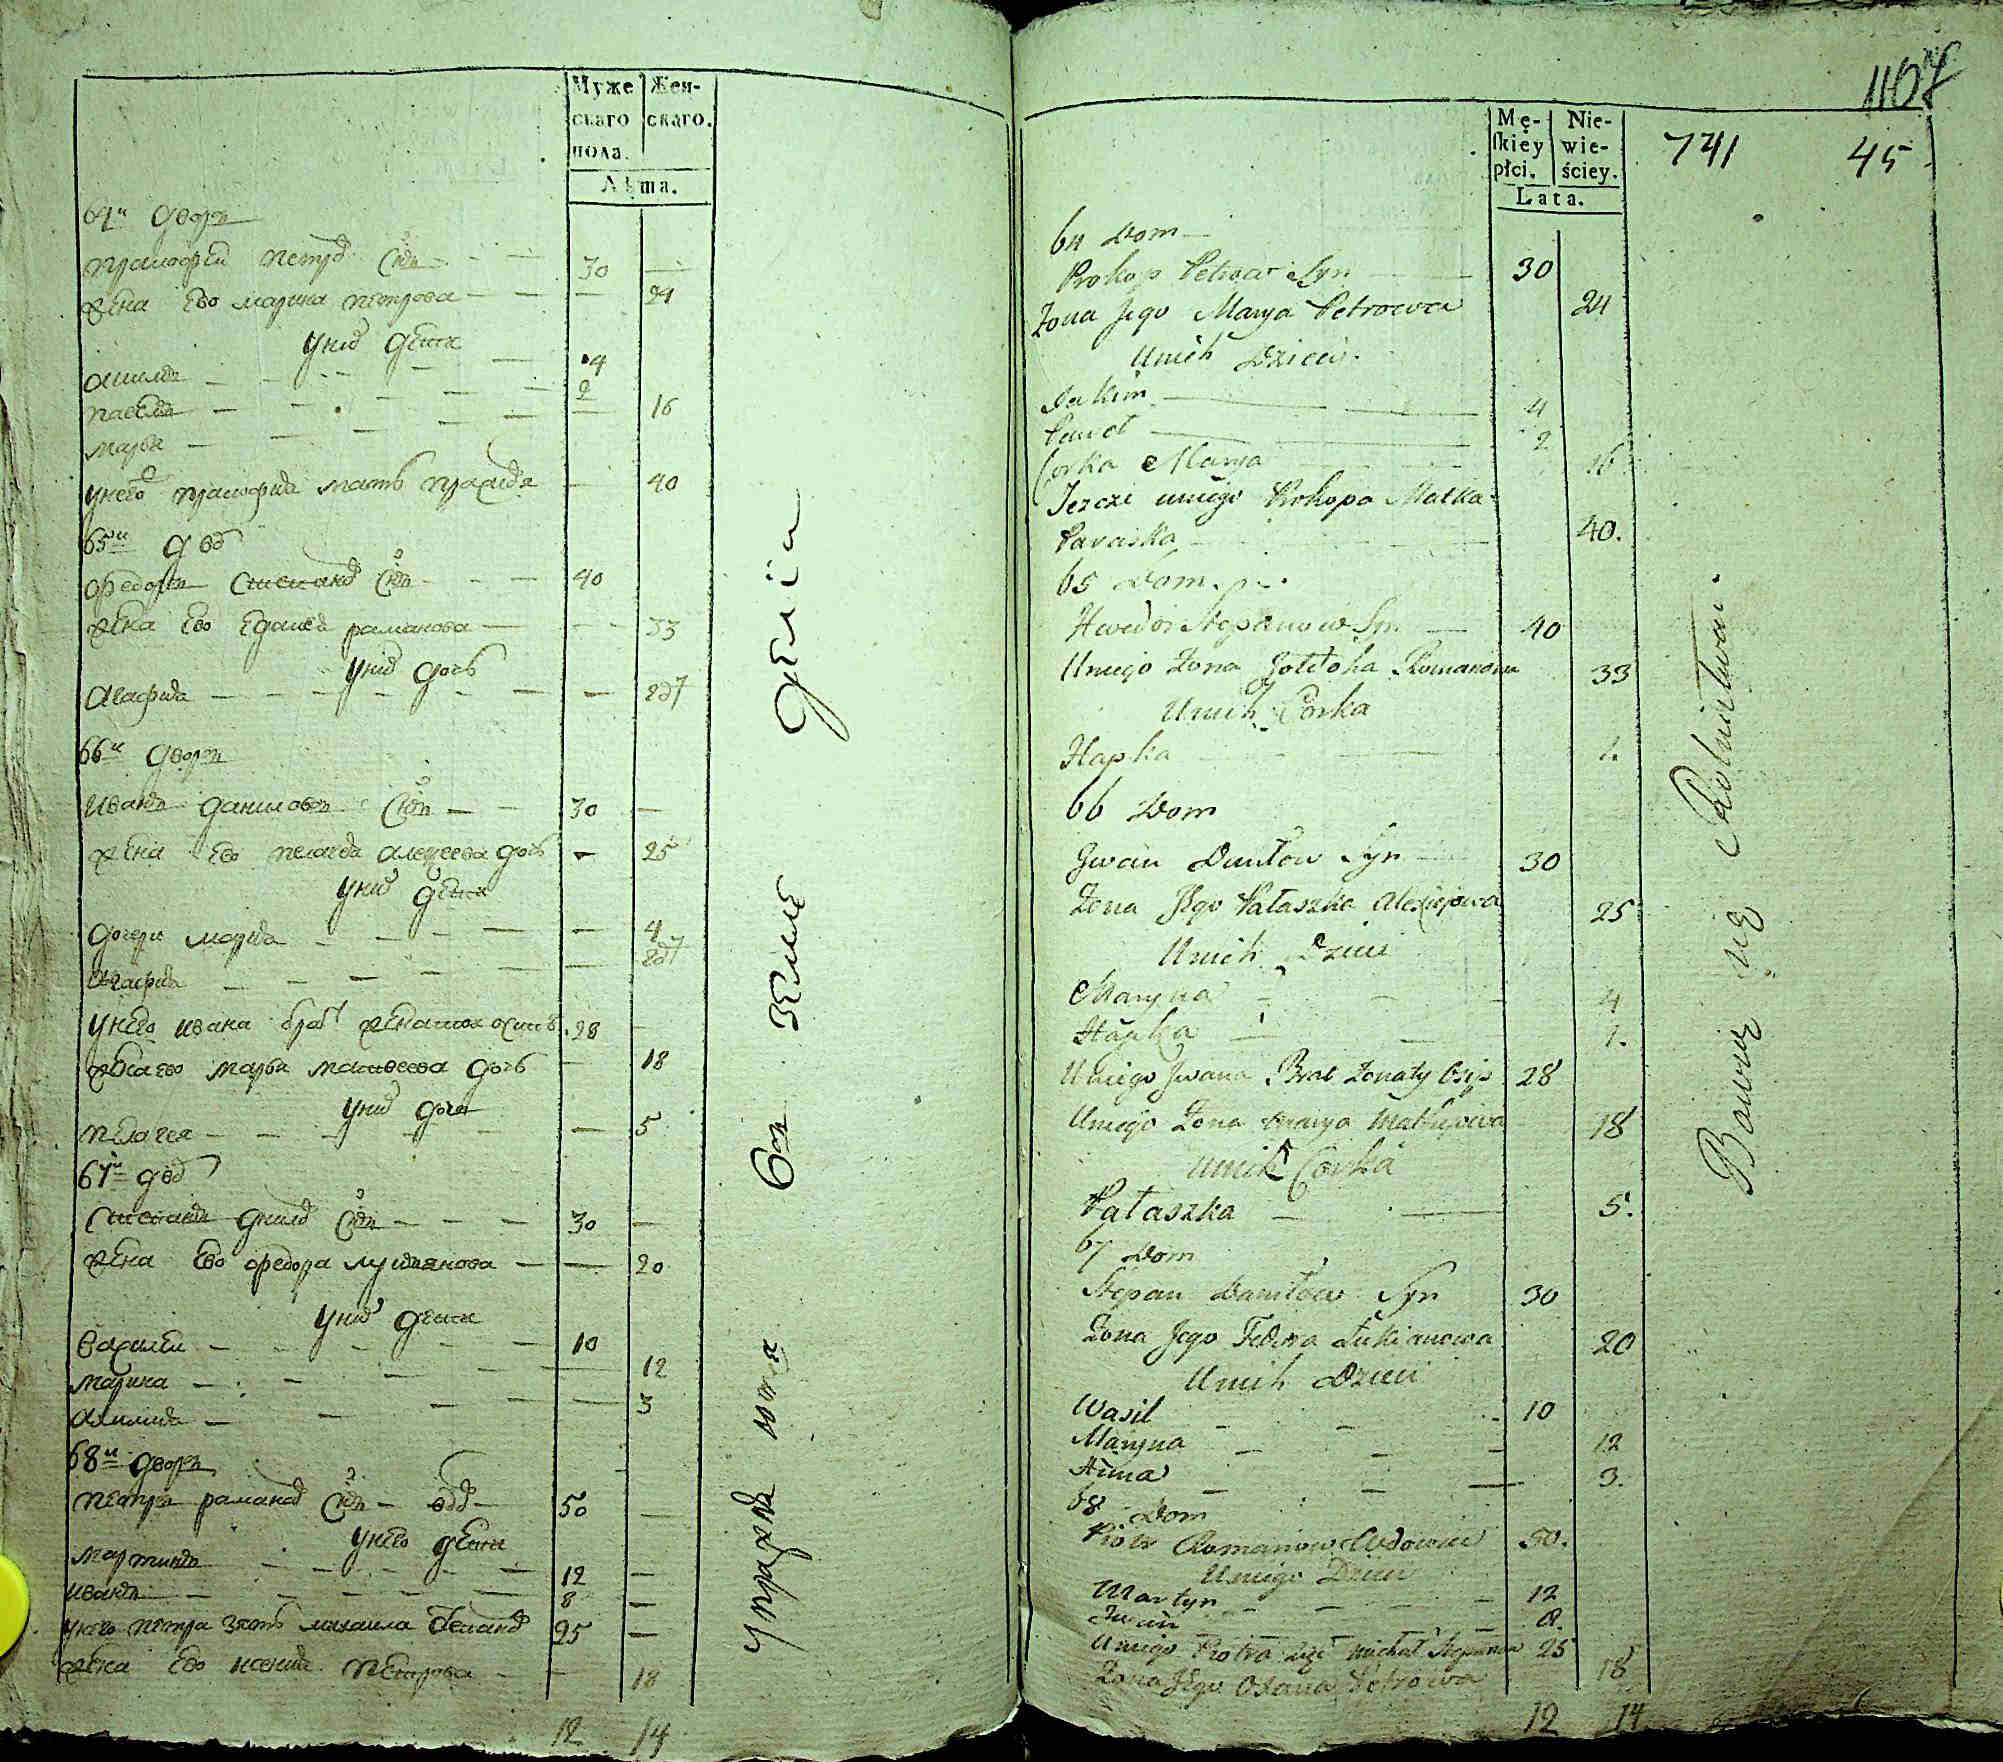 Муже
скаго
пола.
Жен-
скаго.
Лѣта.
64й дворъ
прокофей петровъ сынъ 30
жена ево марина петрова 24
у них дети
акимъ 4
павелъ 2
марья 16
у него прокофья мать прасковья 40
65й двор
федоръ степанов сынъ 40
жена ево евдокея раманова 33
у них дочь
агафья 1 год
66й дворъ
иванъ даниловъ сынъ 30
жена ево пелагея алексеева дочь 25
у них дети
дочери марья 4
агафья 1 год
у него ивана брат женатой осипъ 28
жена ево марья матвеева дочь 18
у них дочь
пелагея 5
67й двор
степанъ данилов сынъ 30
жена ево федора лукьянова 20
у них дети
василей 10
марина 12
акилина 3
68й дворъ
петръ раманов сынъ вдов 50
у него дети
мартинъ 12
иванъ 8
у него петра зять михаила степанов 25
жена ево ксения петрова 18
12 14
упражняются въ земледелии
1107
Mę-
ſkiey
płci.
Nie-
wie-
ściey.
Lata.
741 45
64 Dom
Prokop Petrow Syn 30
Żona Jego Marya Petrowa 24
U nich Dzieci
Jakim 4
Paweł 2
Corka Marya 16
Jezcze u niego Prokopa Matka
Paraska 40.
65 Dom
Hwedor Stepanow Syn 40
U niego Zona Jołdoha Romanowa 33
U nich Corka
Hapka 1.
66 Dom
Jwan Daniłow Syn 30
Żona Jego Pałaszka Alexiejowa 25
U nich Dzieci
Maryna 4
Hapka 1.
U niego Jwana Brat Żonaty Osip 28
U niego Zona Marya Matwejowa 18
U nich Corka
Pałaszka 5.
67 Dom
Stepan Daniłow Syn 30
Żona Jego Fedora Łukianowa 20
U nich Dzieci
Wasil 10
Maryna 12
Hima 3.
68 Dom
Piotr Romanow Wdowiec 50.
U niego Dzieci
Martyn 12
Jwan 8.
U niego Piotra Zięć Michał Stepanow 25
Żona Jego Oxana Petrowa 18
12 14
Bawią się Rolnictwem.